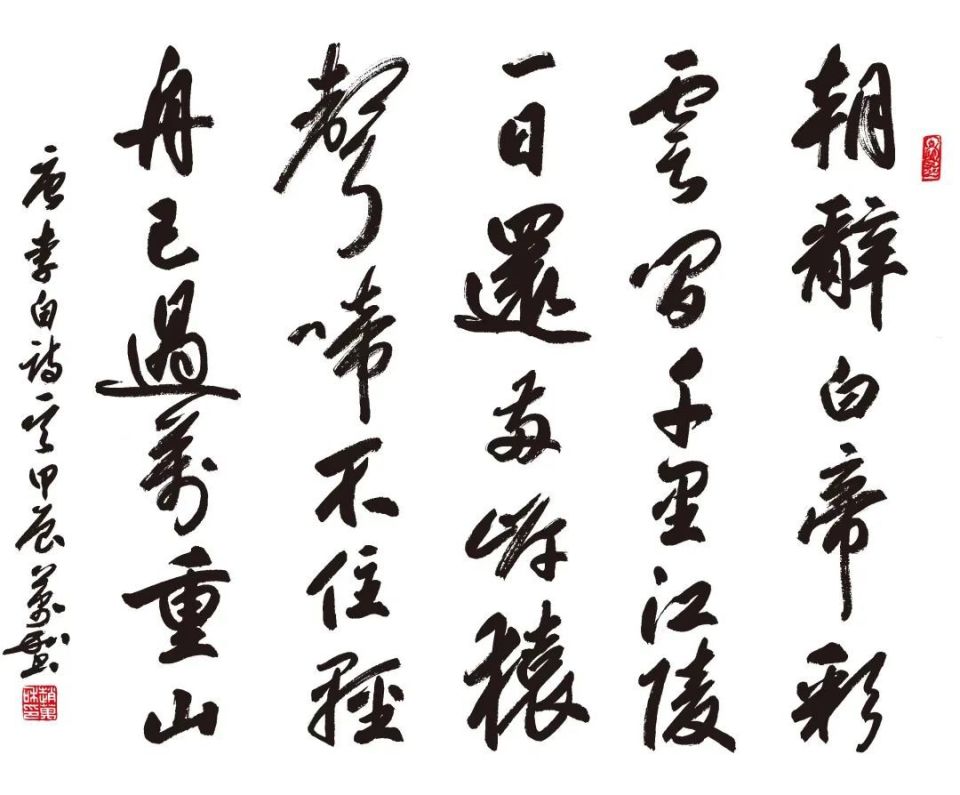 朝辭白帝彩
雲間千里江陵
一日還兩岸猿
聲啼不住輕
舟已過萬重山
唐李白詩一首甲辰萬